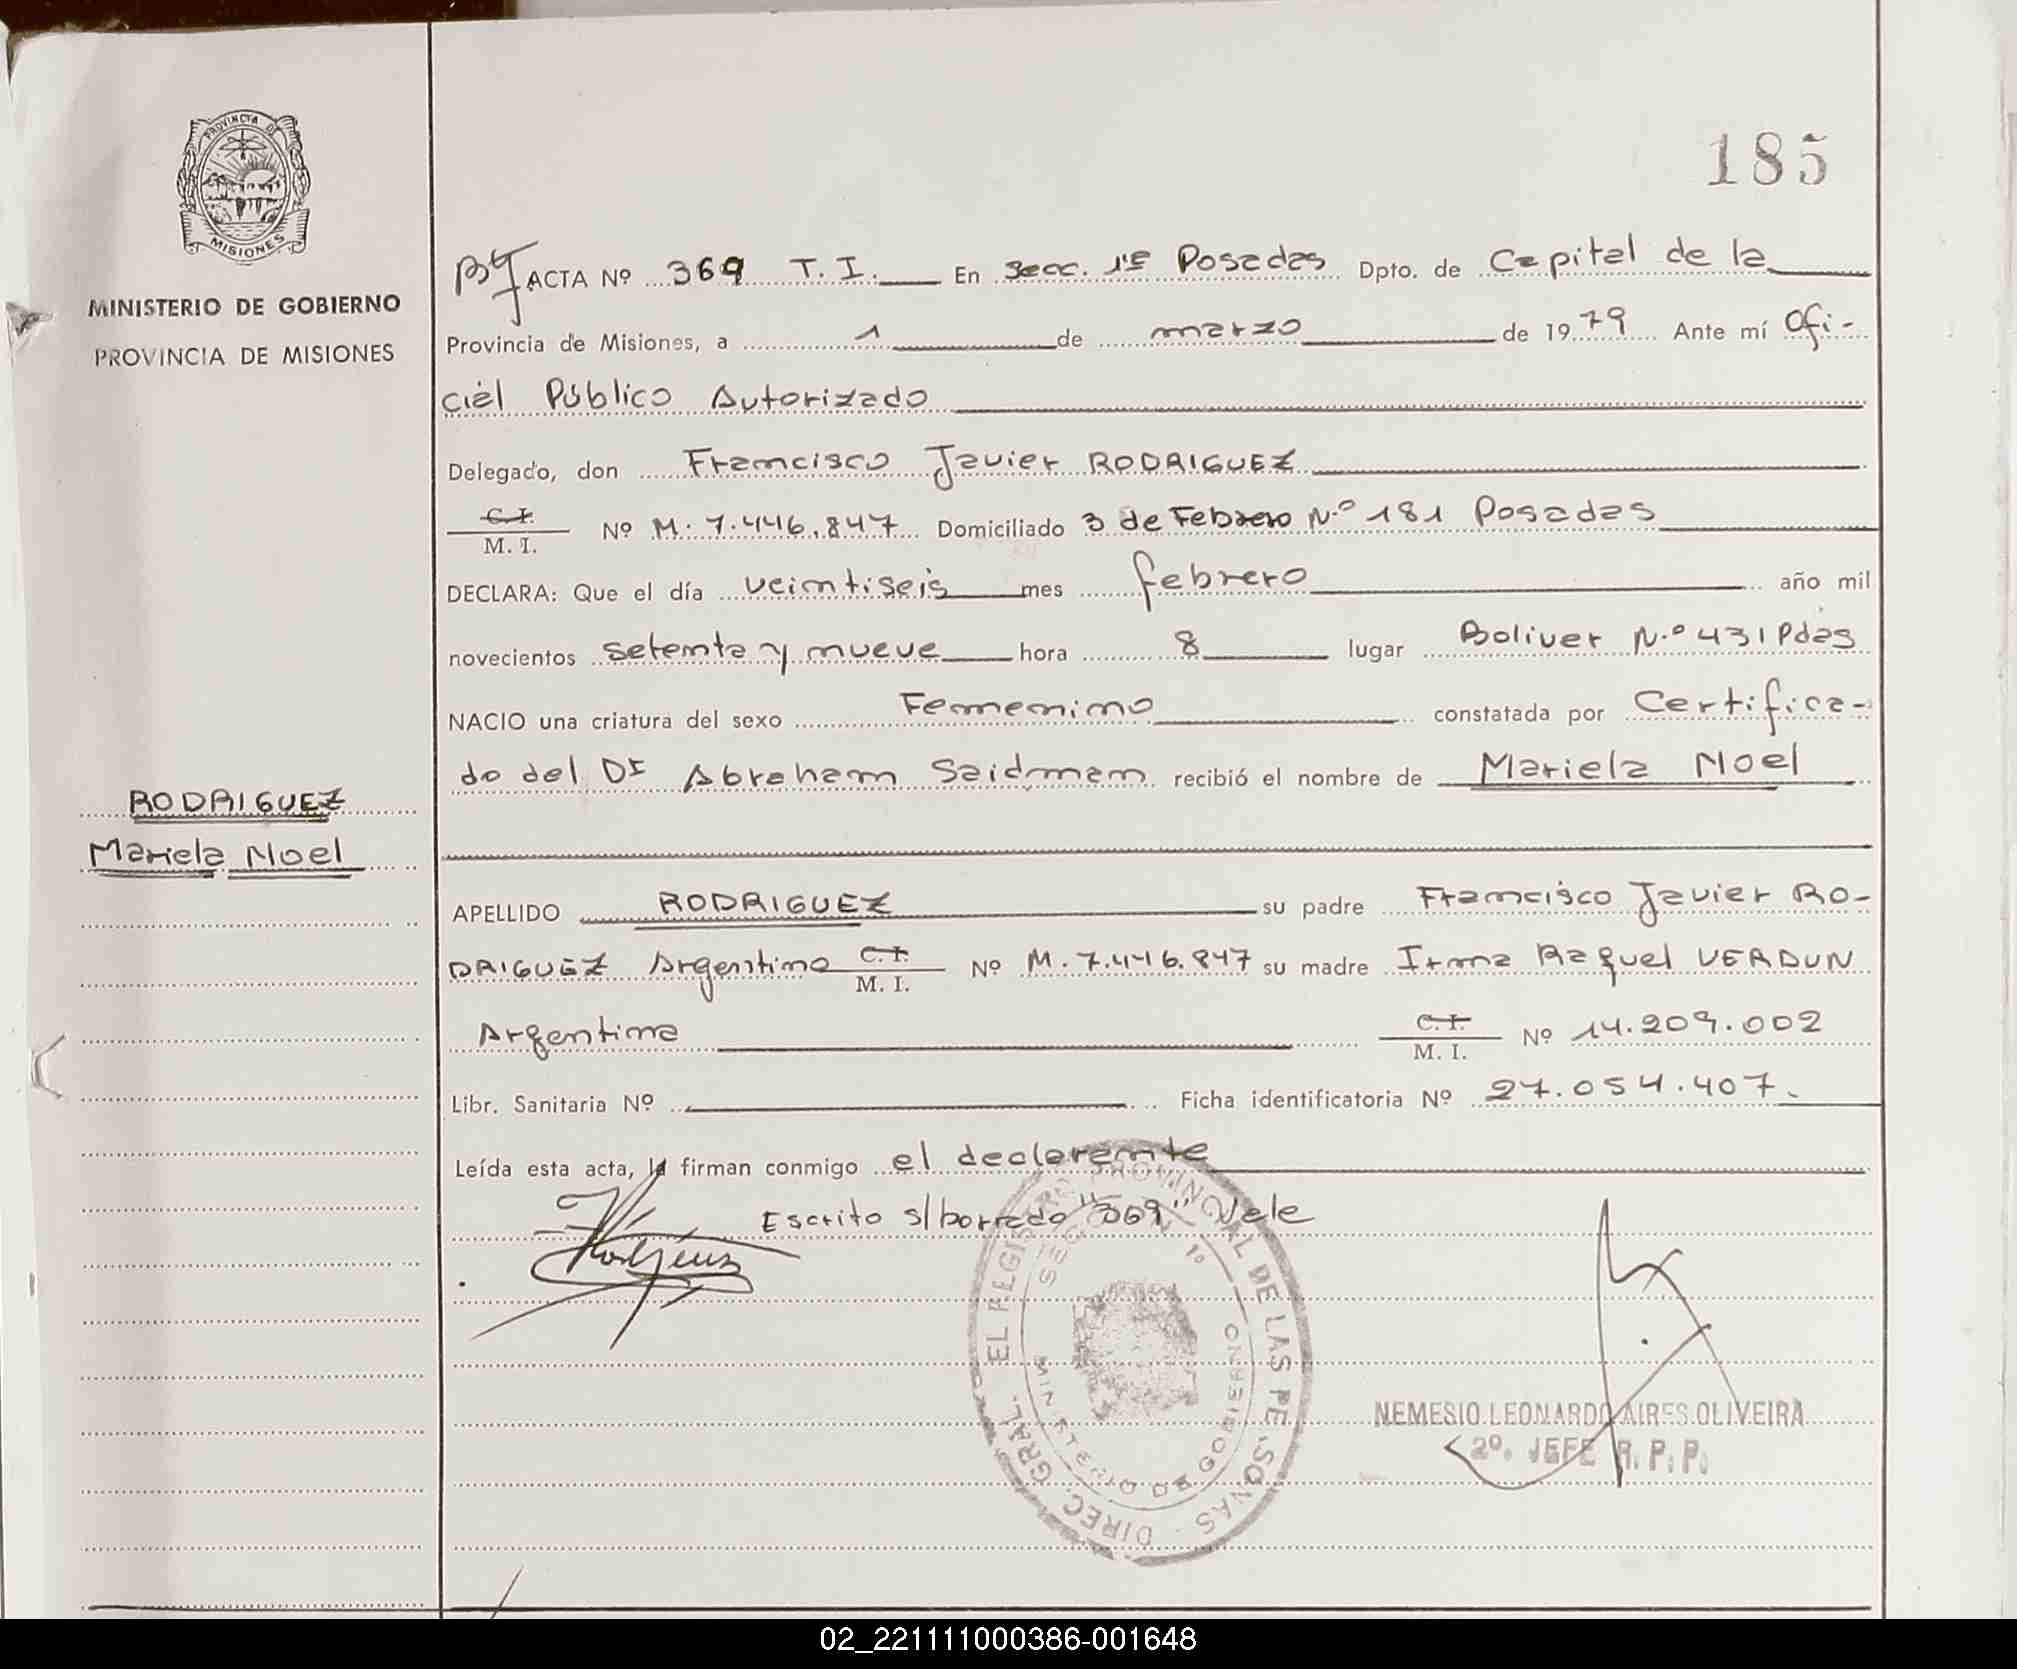 185
PROVINCIA DE
MISIONES
MINISTERIO DE GOBIERNO
PROVINCIA DE MISIONES
ACTA Nº 369 T. I. En Secc. 1ª Posadas Dpto. de Capital de la
Provincia de Misiones, a 1 de marzo de 1979 Ante mí Ofi-
cial Público Autorizado
Delegado, don Francisco Javier RODRIGUEZ
C. I.
M. I. Nº M. 7.446.847 Domiciliado 3 de Febrero N.º 181 Posadas
DECLARA: Que el día veintiseis mes febrero año mil
novecientos setenta y nueve hora 8 lugar Bolivar N.º 431 Pdas
NACIO una criatura del sexo Femenino constatada por Certifica-
do del Dr Abraham Saidman recibió el nombre de Mariela Noel
RODRIGUEZ
Mariela Noel
APELLIDO RODRIGUEZ su padre Francisco Javier RO-
DRIGUEZ Argentino C. I.
M. I. Nº M. 7.446.847 su madre Irma Raquel VERDUN
Argentina C. I.
M. I. Nº 14.209.002
Libr. Sanitaria Nº Ficha identificatoria Nº 27.054.407.
Leída esta acta, la firman conmigo el declarante
Escrito s/borrado "369" Vale
DIREC. GRAL. EL REGISTRO PROVINCIAL DE LAS PERSONAS
SECC 1º
MINISTERIO DE GOBIERNO
NEMESIO LEONARDO AIRES OLIVEIRA
2º. JEFE R. P. P.
02_221111000386-001648